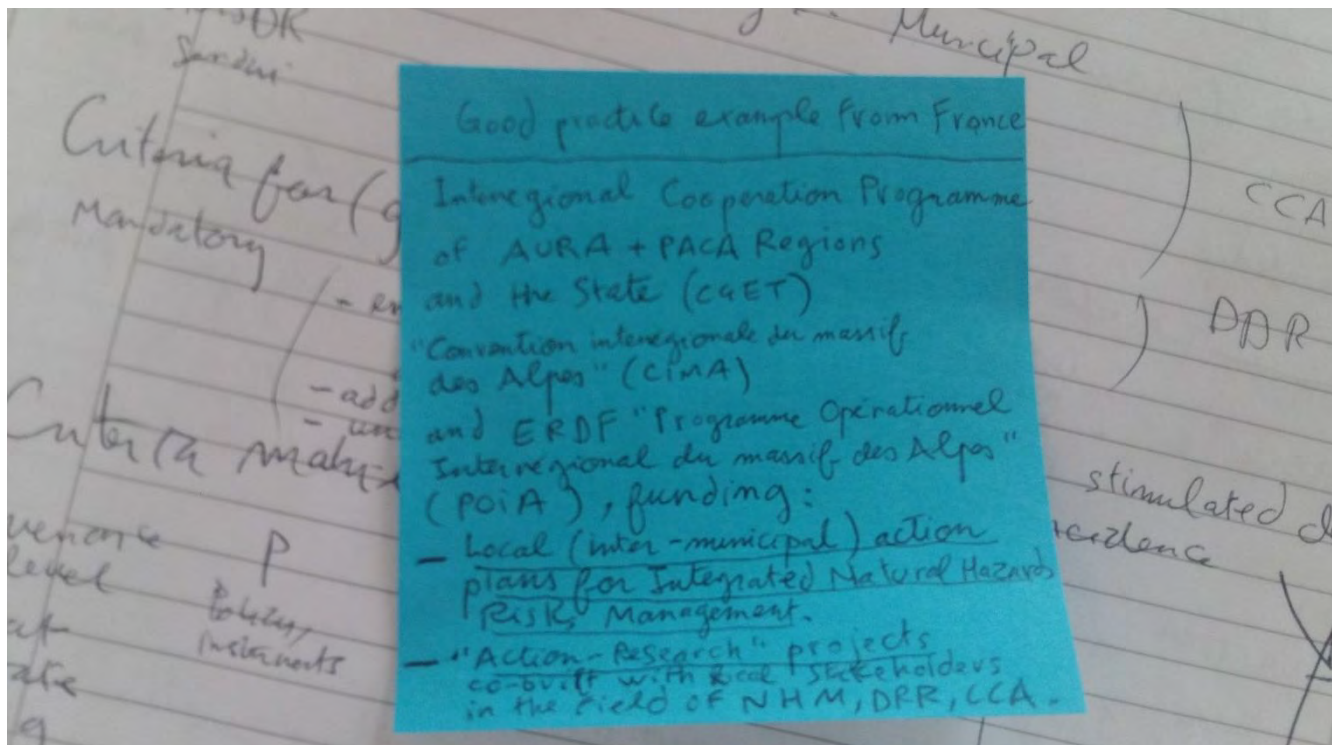 Muncipal
Criteria for (g
Mandatory
CCA
DDR
- add
Criteria
level
P
Policy,
instruments
stimulated d
Good practice example from France
Interegional Cooperation Programme
of AURA + PACA Regions
and the State (CGET)
"Convention interegionale du massif
des Alpes" (CiMA)
and ERDF "Programme Opérationnel
Interregional du massif des Alpes"
(POiA), funding:
- Local (inter-municipal) action
plans for Integrated Natural Hazards
Risk Management.
- "Action-Research" projects
co-built with local stakeholders
in the field of NHM, DRR, CCA.